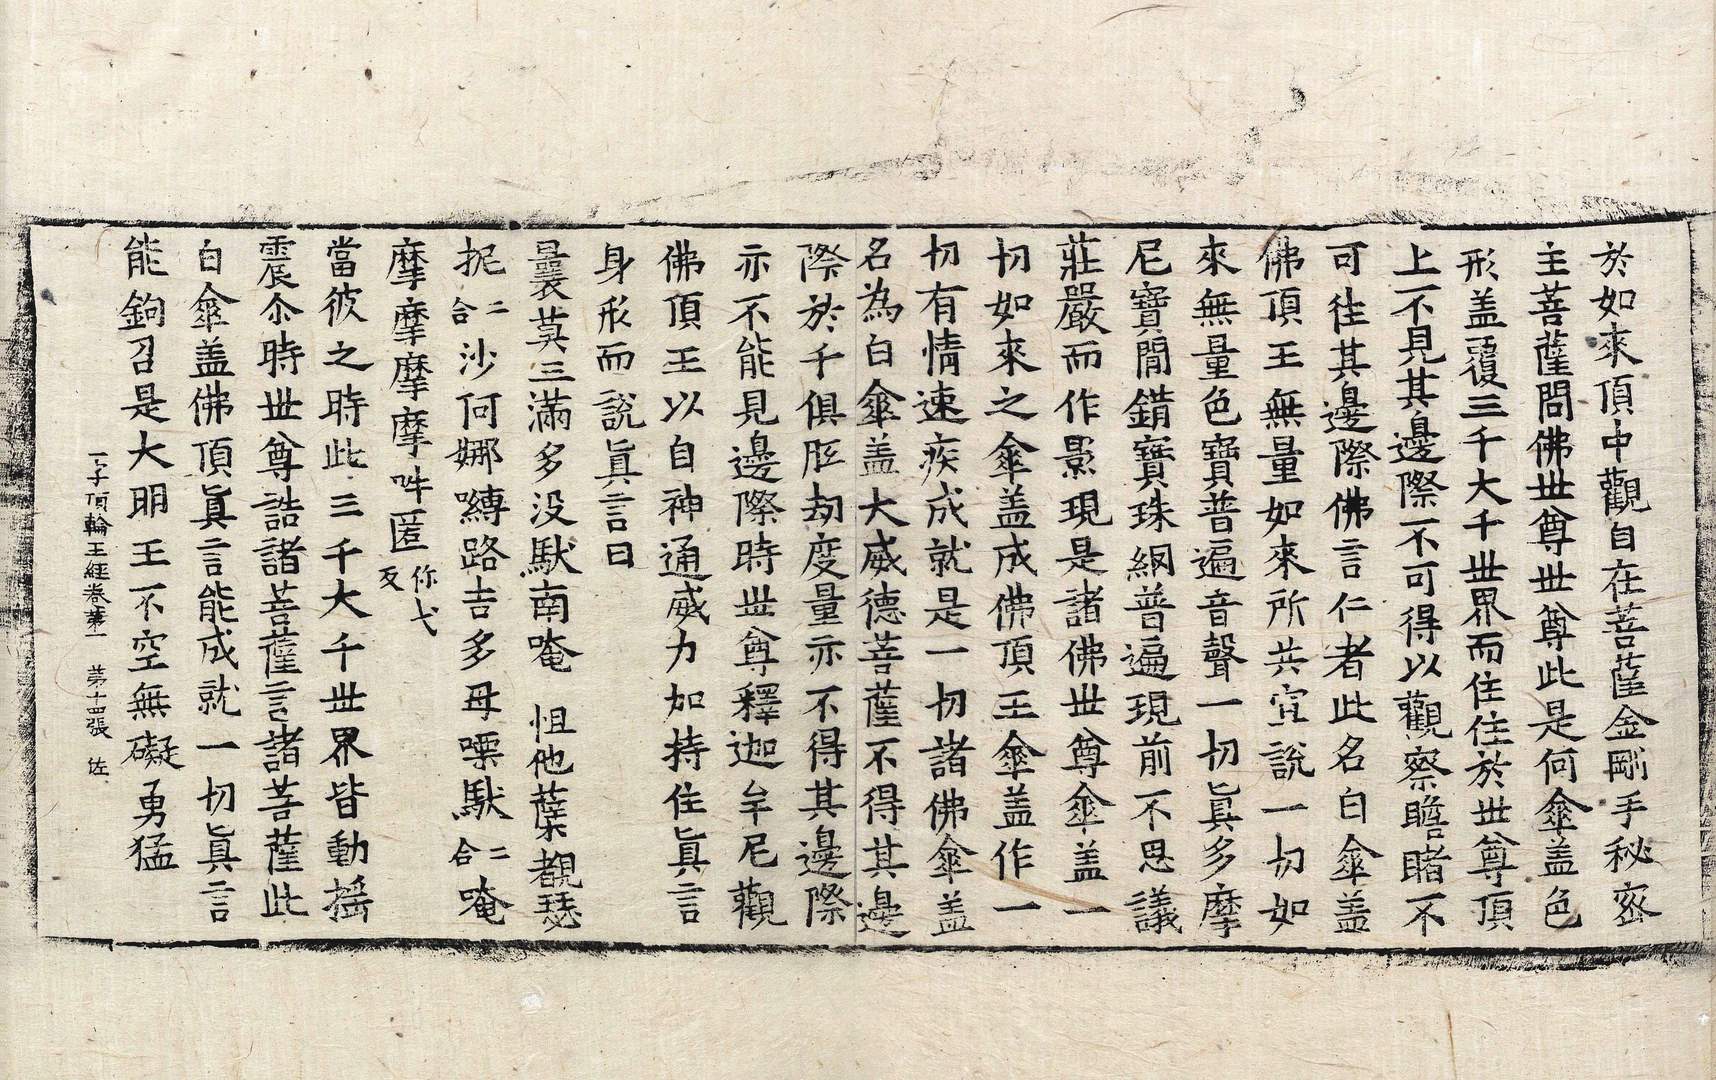 於如來頂中觀自在菩薩金剛手秘密
主菩薩問佛世尊世尊此是何傘盖色
形盖覆三千大千世界而住住於世尊頂
上不見其邊際不可得以觀察瞻睹不
可往其邊際佛言仁者此名白傘盖
佛頂王無量如來所共宣說一切如
來無量色寶普遍音聲一切眞多摩
尼寶閒錯寶珠網普遍現前不思議
莊嚴而作影現是諸佛世尊傘盖一
切如來之傘盖成佛頂王傘盖作一
切有情速疾成就是一切諸佛傘盖
名為白傘盖大威德菩薩不得其邊
際於千俱胝劫度量亦不得其邊際
亦不能見邊際時世尊釋迦牟尼觀
佛頂王以自神通威力如持住眞言
身形而說眞言曰
曩莫三滿多没馱南唵 怛他蘖覩瑟
抳二合沙何娜嚩路吉多母㗚馱二合唵
摩摩摩摩吽匿你弋反
當彼之時此三千大千世界皆動搖
震尒時世尊誥諸菩薩言諸菩薩此
白傘盖佛頂眞言能成就一切眞言
能鉤召是大明王不空無礙勇猛
一字頂輪王經卷第一 第十四張 佐